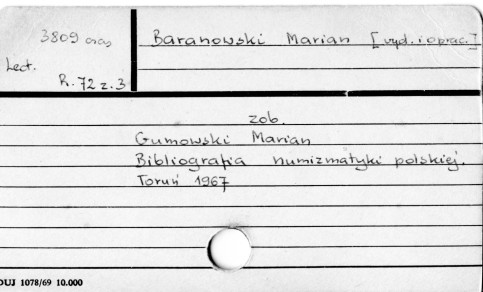 3809 czas
Baranowski Marian [wyd. i oprac.]
Lect.
R. 72 z. 3
zob.
Gumowski Marian
Bibliografia numizmatyki polskiej.
Toruń 1967
DUJ 1078/69 10.000